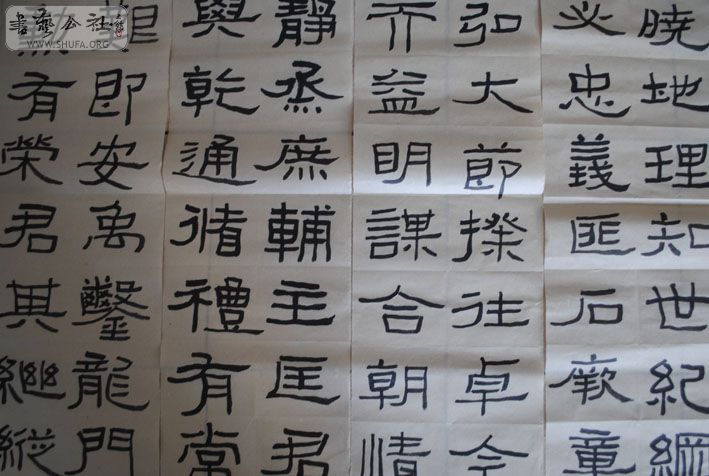 書藝公社
WWW.SHUFA.ORG
曉地理知世紀綱
必忠義匪石厥章
弘大節揆往卓今
而益明謀合朝情
靜烝庶輔主匡君
與乾通循禮有常
即安禹鑿龍門
有榮君其繼縱